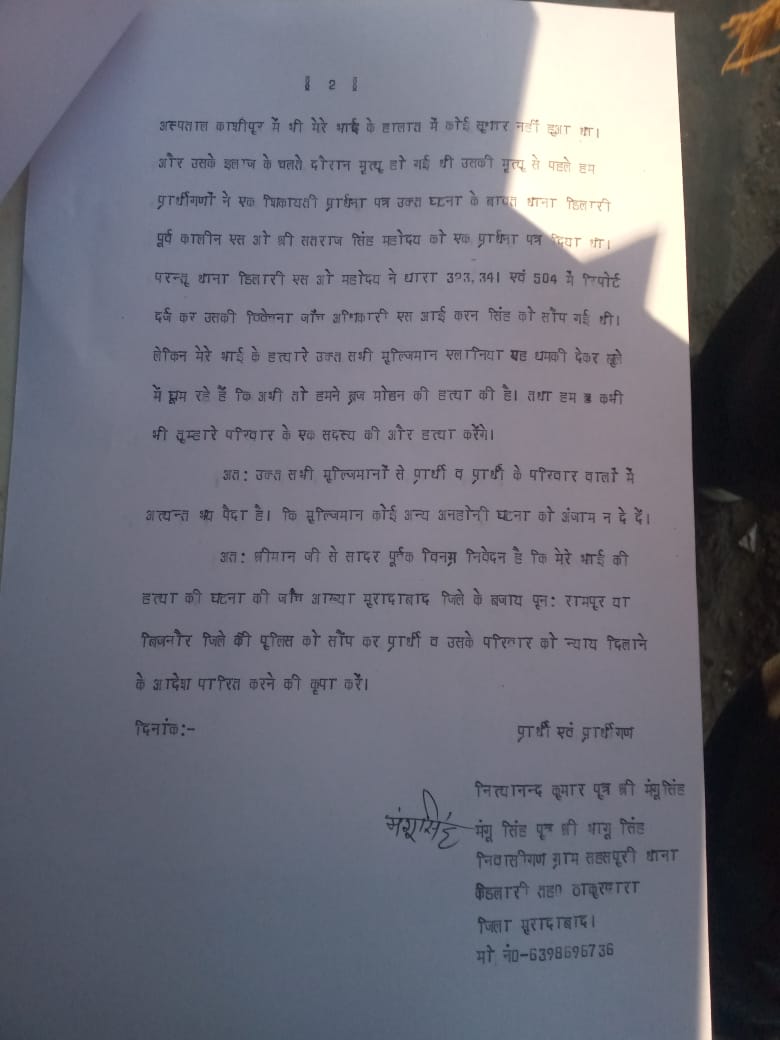 ॥ 2 ॥
अस्पताल काशीपूर में भी मेरे भाई के हालात में कोई सूधार नहीं हूआ था।
और उसके इलाज के चलते दौरान मृत्यू हो गई थी उसकी मृत्यू से पहले हम
प्रार्थीगणों ने एक शिकायती प्रार्थना पत्र उक्त घटना के बावत थाना डिलारी
पूर्व कालीन एस ओ श्री सतराज सिंह महोदय को एक प्रार्थना पत्र दिया था।
परन्तू थाना डिलारी एस ओ महोदय ने धारा 323, 341 एवं 504 में रिपोर्ट
दर्ज कर उसकी विवेचना जाँच अधिकारी एस आई करन सिंह को सौंप गई थी।
लेकिन मेरे भाई के हत्यारे उक्त सभी मूल्जिमान एलानिया यह धमकी देकर खूले
में घूम रहे हैं कि अभी तो हमने ब्रज मोहन की हत्या की है। तथा हम कभी
भी तूम्हारे परिवार के एक सदस्य की और हत्या करेंगे।
अत: उक्त सभी मूल्जिमानों से प्रार्थी व प्रार्थी के परिवार वालों में
अत्यन्त भय पैदा है। कि मूल्जिमान कोई अन्य अनहोनी घटना को अंजाम न दे दें।
अत: श्रीमान जी से सादर पूर्वक विनम्र निवेदन है कि मेरे भाई की
हत्या की घटना की जाँच आख्या मूरादाबाद जिले के बजाय पून: रामपूर या
बिजनौर जिले की पूलिस को सौंप कर प्रार्थी व उसके परिवार को न्याय दिलाने
के आदेश पारित करने की कृपा करें।
दिनांक:-
प्रार्थी एवं प्रार्थीगण
नित्यानन्द कूमार पूत्र श्री मंगूसिंह
मंगूसिंह
मंगू सिंह पूत्र श्री भागू सिंह
निवासीगण ग्राम सहसपूरी थाना
डिलारी तह0 ठाकूरद्वारा
जिला मूरादाबाद।
मो. नं0-6398696736